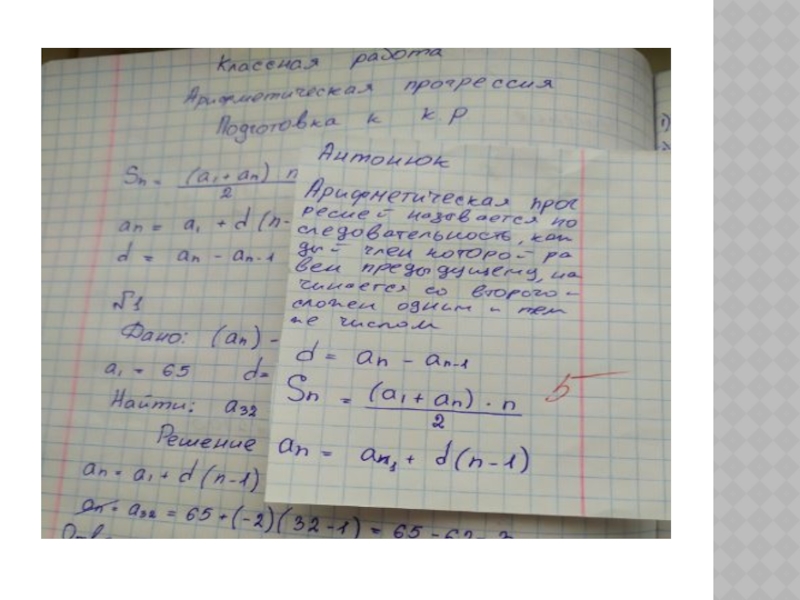 Классная работа
Арифметическая прогрессия
Подготовка к кр
Sn = (a₁ + an) n
2
an = a₁ + d (n-
d = an - an-1
№1
Дано: (an) -
a₁ = 65 d=
Найти: a32
Решение
an = a₁ + d (n-1)
an = a32 = 65 + (-2)(32-1) = 65 - 62 = 3
Антонюк
Арифметическая прог
рессией называется по
следовательность, каж
дый член которой ра
вен предыдущему, на
чинается со второго -
сложен одним и тем
же числом
d = an - an-1
Sn = (a₁ + an) · n
2
5
an = an₁ + d (n-1)
1)